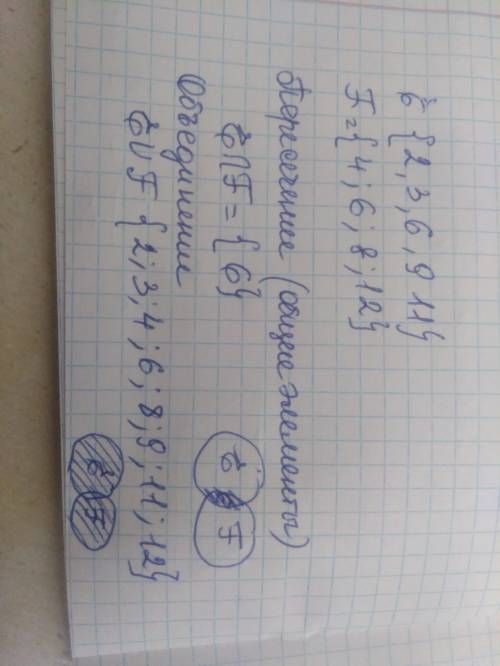 E {2, 3, 6, 9 11}
F = {4; 6; 8; 12}
Пересечение (общие элементы)
E ∩ F = {6}
E F
Объединение
E ∪ F {2; 3; 4; 6; 8; 9; 11; 12}
E F